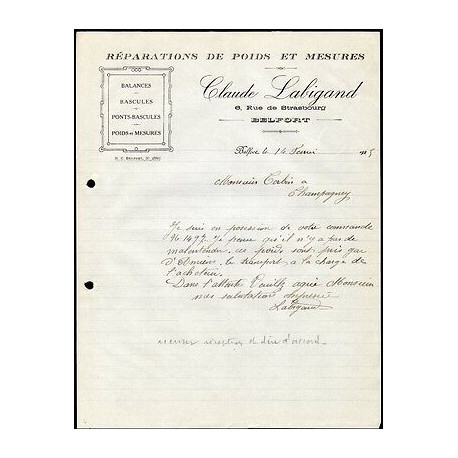 RÉPARATIONS DE POIDS ET MESURES
BALANCES
BASCULES
PONTS-BASCULES
POIDS et MESURES
Claude Labigand
6, Rue de Strasbourg
BELFORT
Belfort le 14 Février
Monsieur Corbin à
Champagney
Je suis en possession de votre commande
No 1497. Je pense qu'il n'y a pas de
malentendu, ces poids sont pris gare
d'Amiens, le transport à la charge de
l'acheteur.
Dans l'attente Veuillez agréer Monsieur
nos salutations empressées
Labigand
réception et d'accord